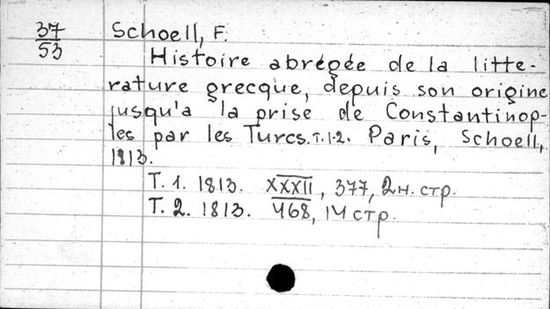 37
53
Schoell, F.
Histoire abrégée de la litte-
rature grecque, depuis son origine
jusqu'a la prise de Constantinop-
les par les Turcs. T. 1-2. Paris, Schoell,
1813.
T. 1. 1813. XXXII, 377, 2 н. стр.
T. 2. 1813. 468, 14 стр.